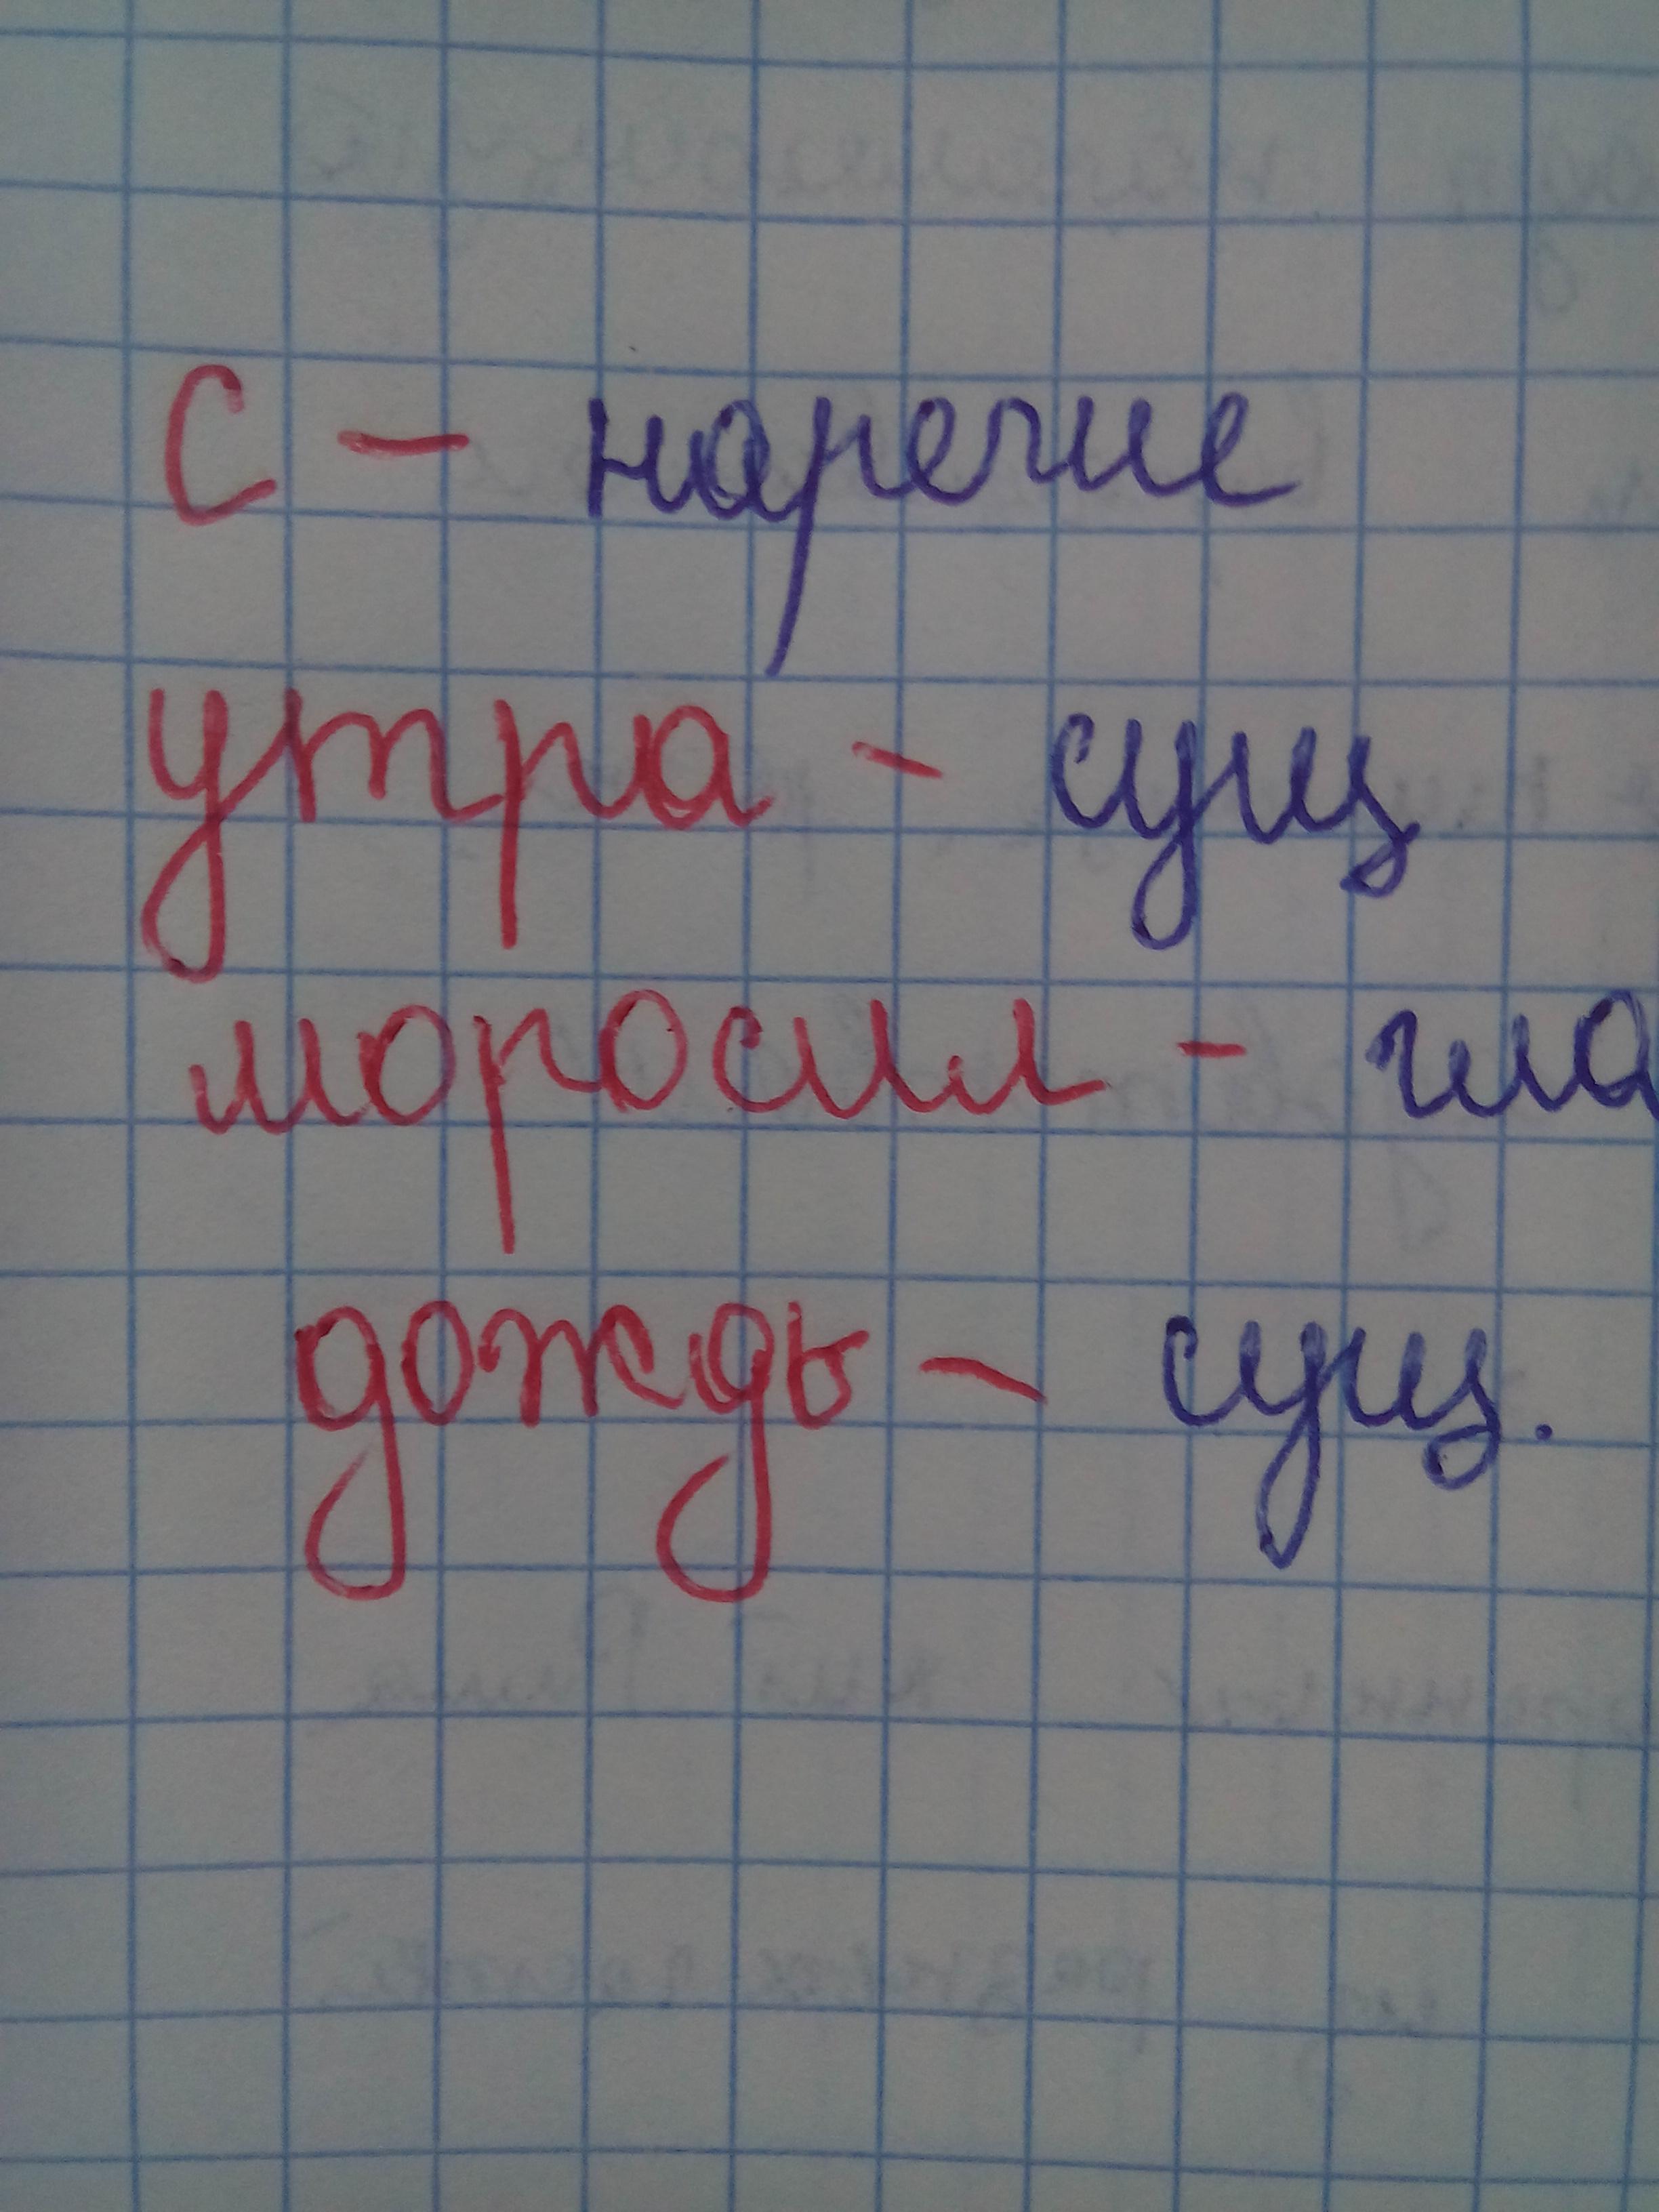 с - наречие
утра - сущ
моросил - гла
дождь - сущ.